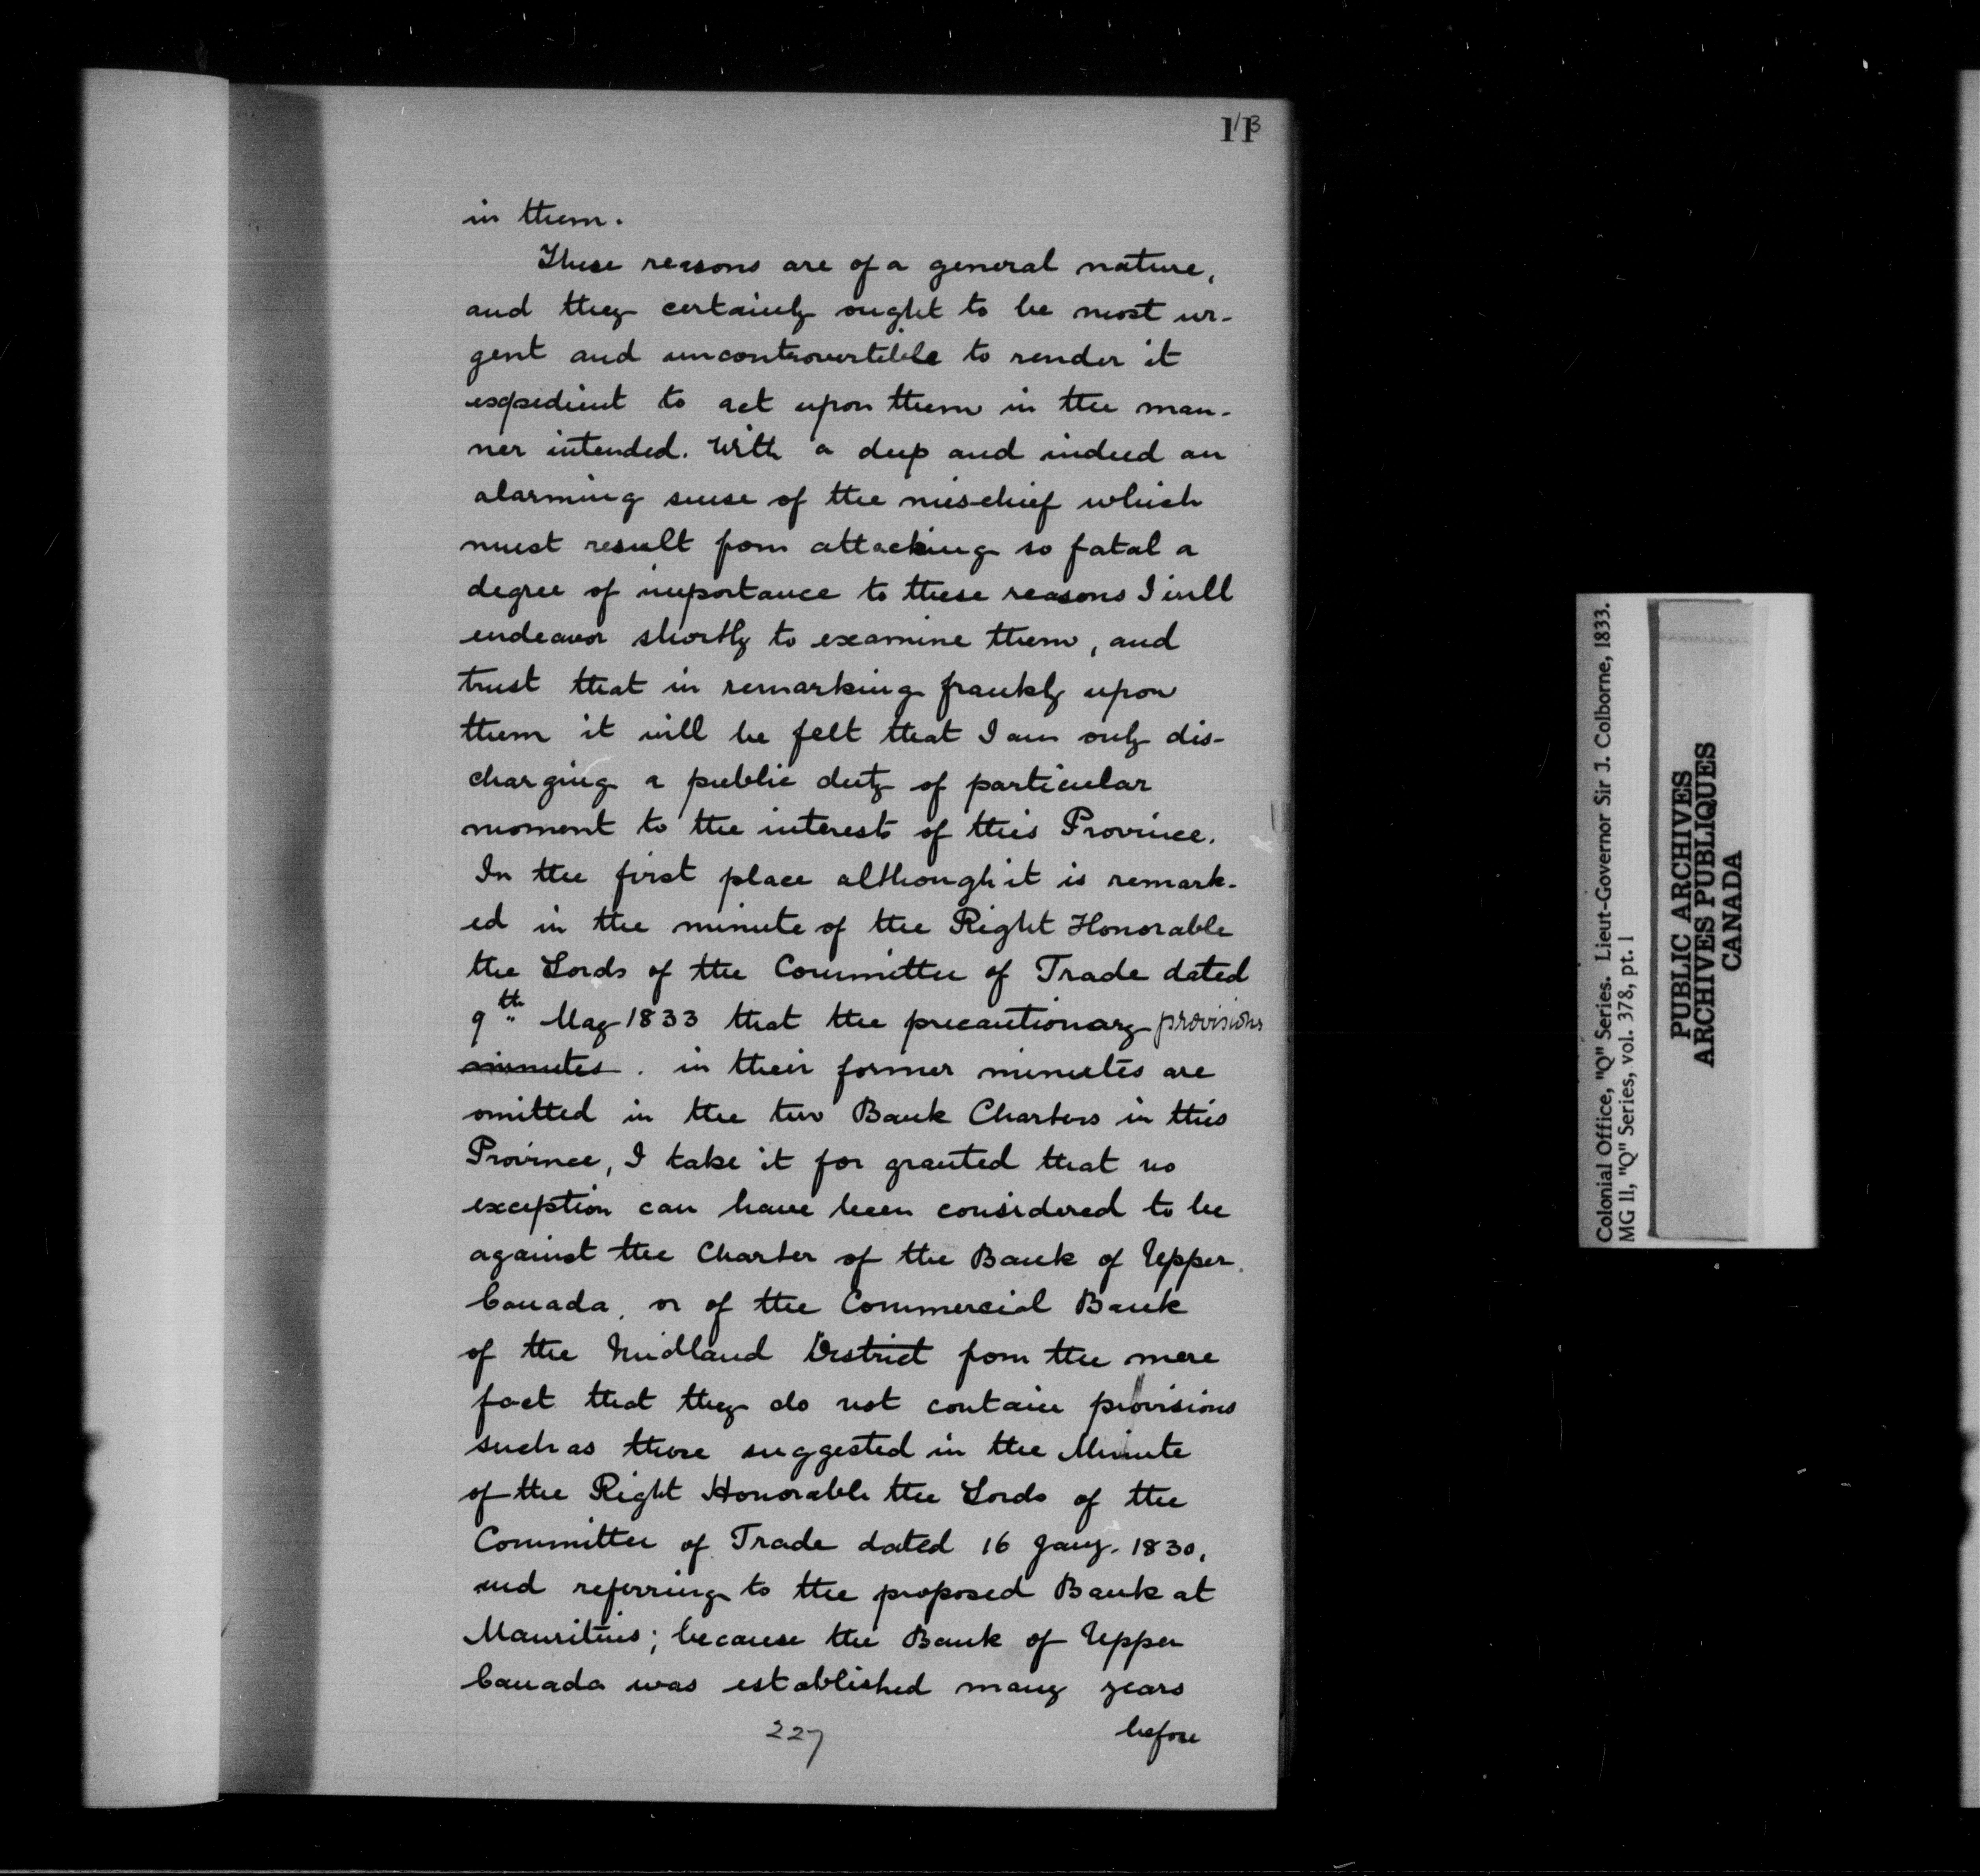 113
in them.
These reasons are of a general nature,
and they certainly ought to be most ur-
gent and uncontrovertible to render it
expedient to act upon them in the man-
ner intended. With a deep and indeed an
alarming sense of the mischief which
must result from attaching so fatal a
degree of importance to these reasons I will
endeavor shortly to examine them, and
trust that in remarking frankly upon
them it will be felt that I am only dis-
charging a public duty of particular
moment to the interests of this Province.
In the first place although it is remark-
ed in the minute of the Right Honorable
the Lords of the Committee of Trade dated
9th May 1833 that the precautionary provisions
minutes. in their former minutes are
omitted in the two Bank Charters in this
Province, I take it for granted that no
exception can have been considered to be
against the Charter of the Bank of Upper
Canada, or of the Commercial Bank
of the Midland District from the mere
fact that they do not contain provisions
such as those suggested in the Minute
of the Right Honorable the Lords of the
Committee of Trade dated 16 Jany. 1830,
and referring to the proposed Bank at
Mauritius; because the Bank of Upper
Canada was established many years
227 before
Colonial Office, "Q" Series. Lieut-Governor Sir J. Colborne, 1833.
MG 11, "Q" Series, vol. 378, pt. 1
PUBLIC ARCHIVES
ARCHIVES PUBLIQUES
CANADA